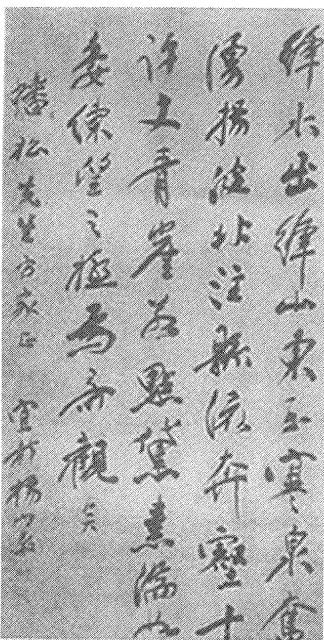 絳水出絳山東寒泉奮
湧揚波北注縣流奔壑十
許丈青崖若點黛素湍如
委練望之極為奇觀矣
松先生方家正